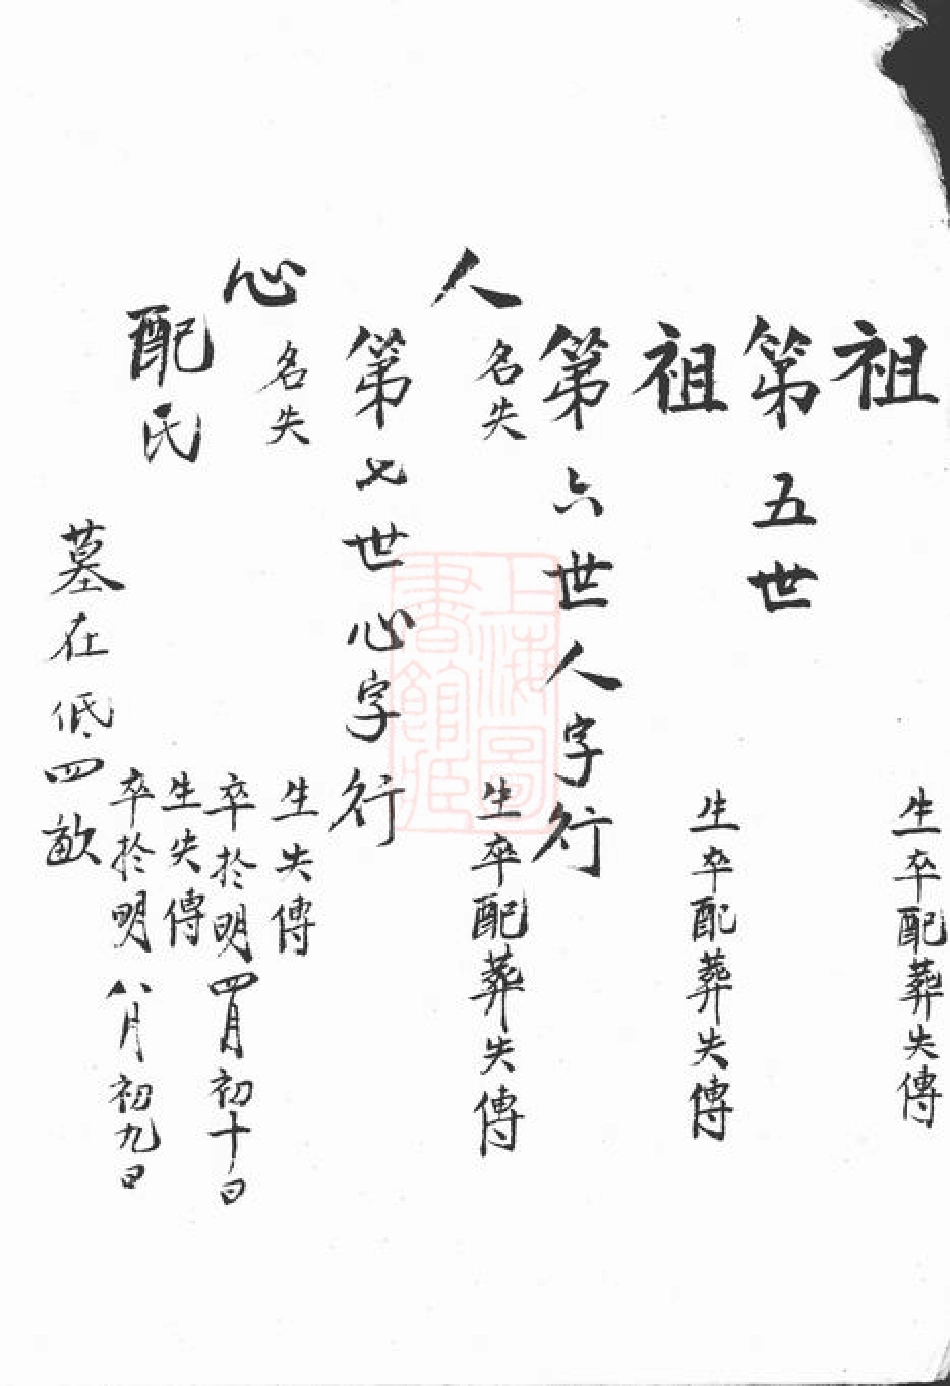 祖
生卒配葬失傳
第五世
祖
生卒配葬失傳
第六世人字行
人
名失
生卒配葬失傳
第七世心字行
心
名失
生失傳
卒於明四月初十日
配氏
生失傳
卒於明八月初九日
墓在低四畝
上海圖
書館藏